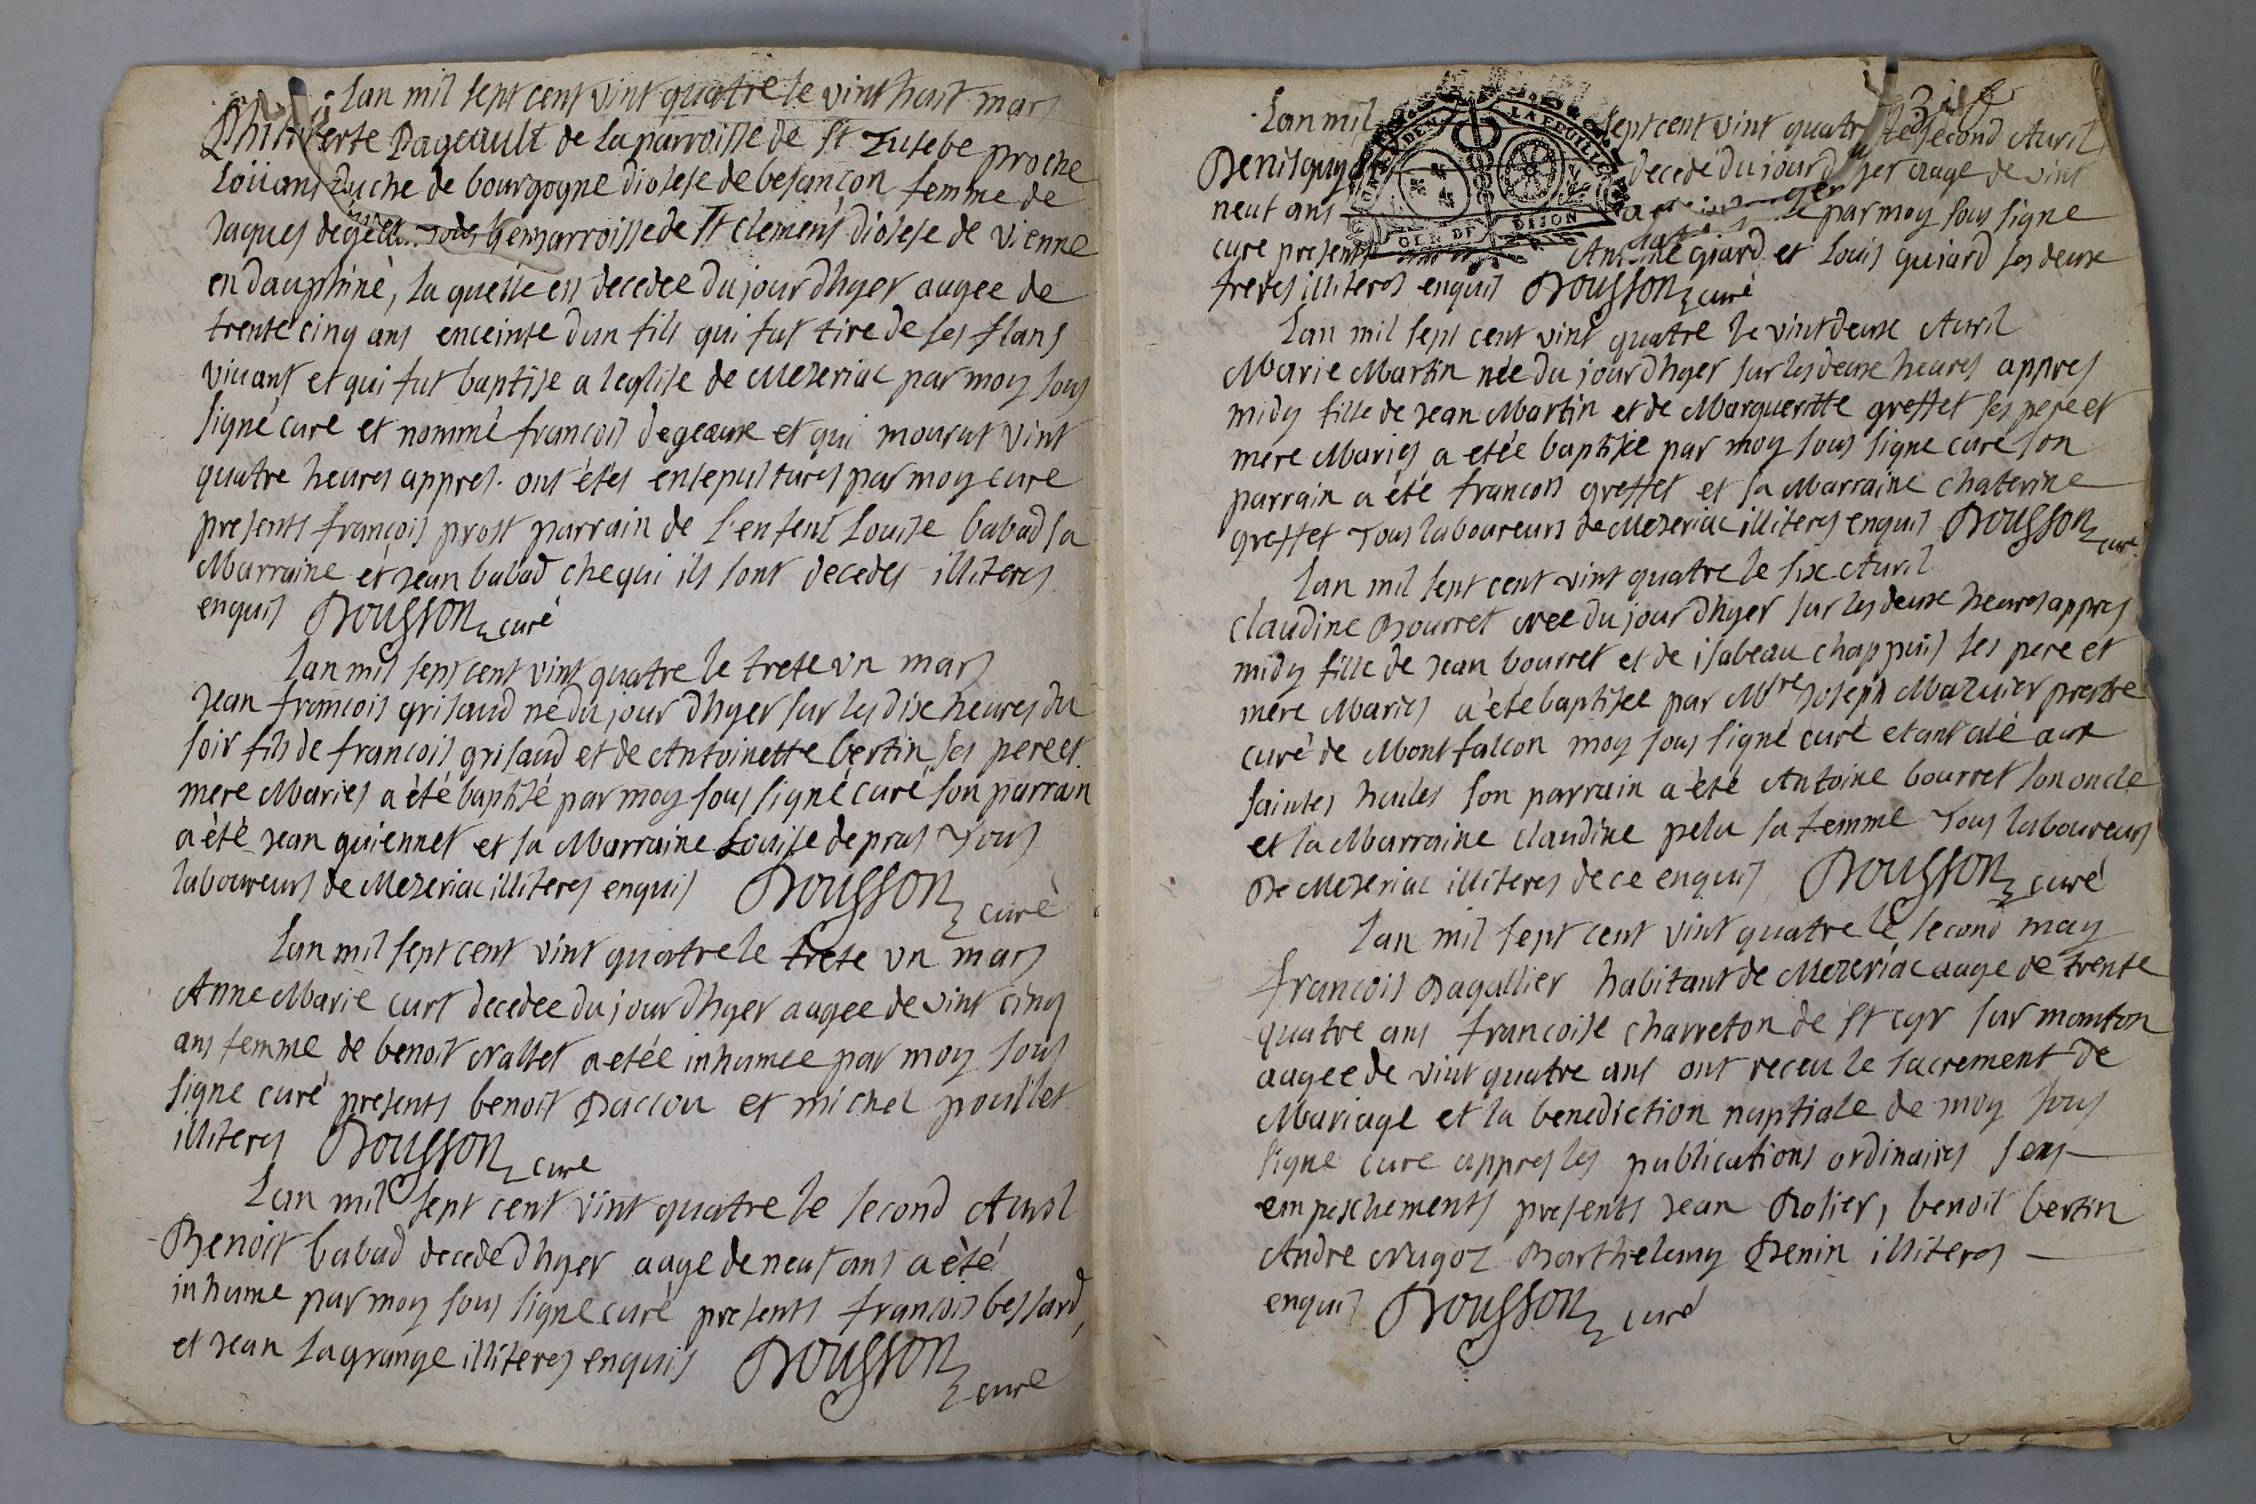 Lan mil sept cent vint quatre le vint huit mars
Philiberte Pageault de la parroisse de St Eusebe proche
Loüans Duche de bourgogne diosese de besançon femme de
Jaques parroisse de St clement diosese de vienne
en dauphiné, la quelle est decedee du jour dhyer augee de
trente cinq ans enceinte dun fils qui fut tire de ses flans
vivant et qui fut baptise a leglise de Mezeriac par moy sous
signé curé et nommé françois degeaux et qui mourut vint
quatre heures appres. ont étés ensepultures par moy cure
presents françois prost parrain de l'enfent Louise babad sa
Marraine et Jean babad che qui ils sont decedes illiteres
enquis Bousson curé
Lan mil sept cent vint quatre le trete un mars
Jean françois grisaud né du jour dhyer sur les dixe heures du
soir fils de francois grisaud et de Antoinette bertin ses pere et
mere Maries a été baptisé par moy sous signé curé son parrain
a été Jean quiennet et sa Marraine Louise depras Tous
laboureurs de Mezeriac illiteres enquis Bousson curé
Lan mil sept cent vint quatre le trete un mars
Anne Marie curt decedee du jour dhyer augee de vint cinq
ans femme de benoit Nallet a etée inhumee par moy sous
signe curé presents benoit Daclou et michel poullet
illiteres Bousson cure
Lan mil sept cent vint quatre le second Avril
Benoit babad decede dhyer auge de neuf ans a été
inhume par moy sous signe curé presents françois bessard,
et Jean Lagrange illiteres enquis Bousson cure
Lan mil sept cent vint quatre le second Avril
Denis decede du jour dhyer auge de vint
neuf ans a par moy sous signe
cure presents Antoine giard et Louis guiard ses deux
freres illiteres enquis Bousson curé
GEN DE DIJON
Lan mil sept cent vint quatre le vint deux Avril
Marie Martin née du jour dhyer sur les deux heures appres
midy fille de Jean Martin et de Margueritte greffet ses pere et
mere Maries a etée baptisée par moy sous signe cure son
parrain a été francois greffet et sa Marraine chaterine
greffet Tous laboureurs de Mezeriac illiteres enquis Bousson cure
Lan mil sept cent vint quatre le six Avril
claudine Bourret Née du jour dhyer sur les deux heures appres
midy fille de Jean bourret et de isabeau chappuis ses pere et
mere Maries a été baptisee par Mtre Joseph Mazuier prestre
curé de Montfalcon moy sous signé curé etant alé aux
saintes huiles son parrain a été Antoine bourret son oncle
et la Marraine claudine pelu sa femme Tous laboureurs
De Mezeriac illiteres de ce enquis Bousson curé
Lan mil sept cent vint quatre le second may
francois Dagallier habitant de Mezeriac auge de trente
quatre ans francoise charreton de St cyr sur manton
augee de vint quatre ans ont receu le sacrement de
Mariage et la benediction nuptiale de moy sous
signe cure appres les publications ordinaires sens
empeschements presents Jean Rolier, benoit bertin
Andre Nugoz Barthelemy Benin illiteres
enquis Bousson curé